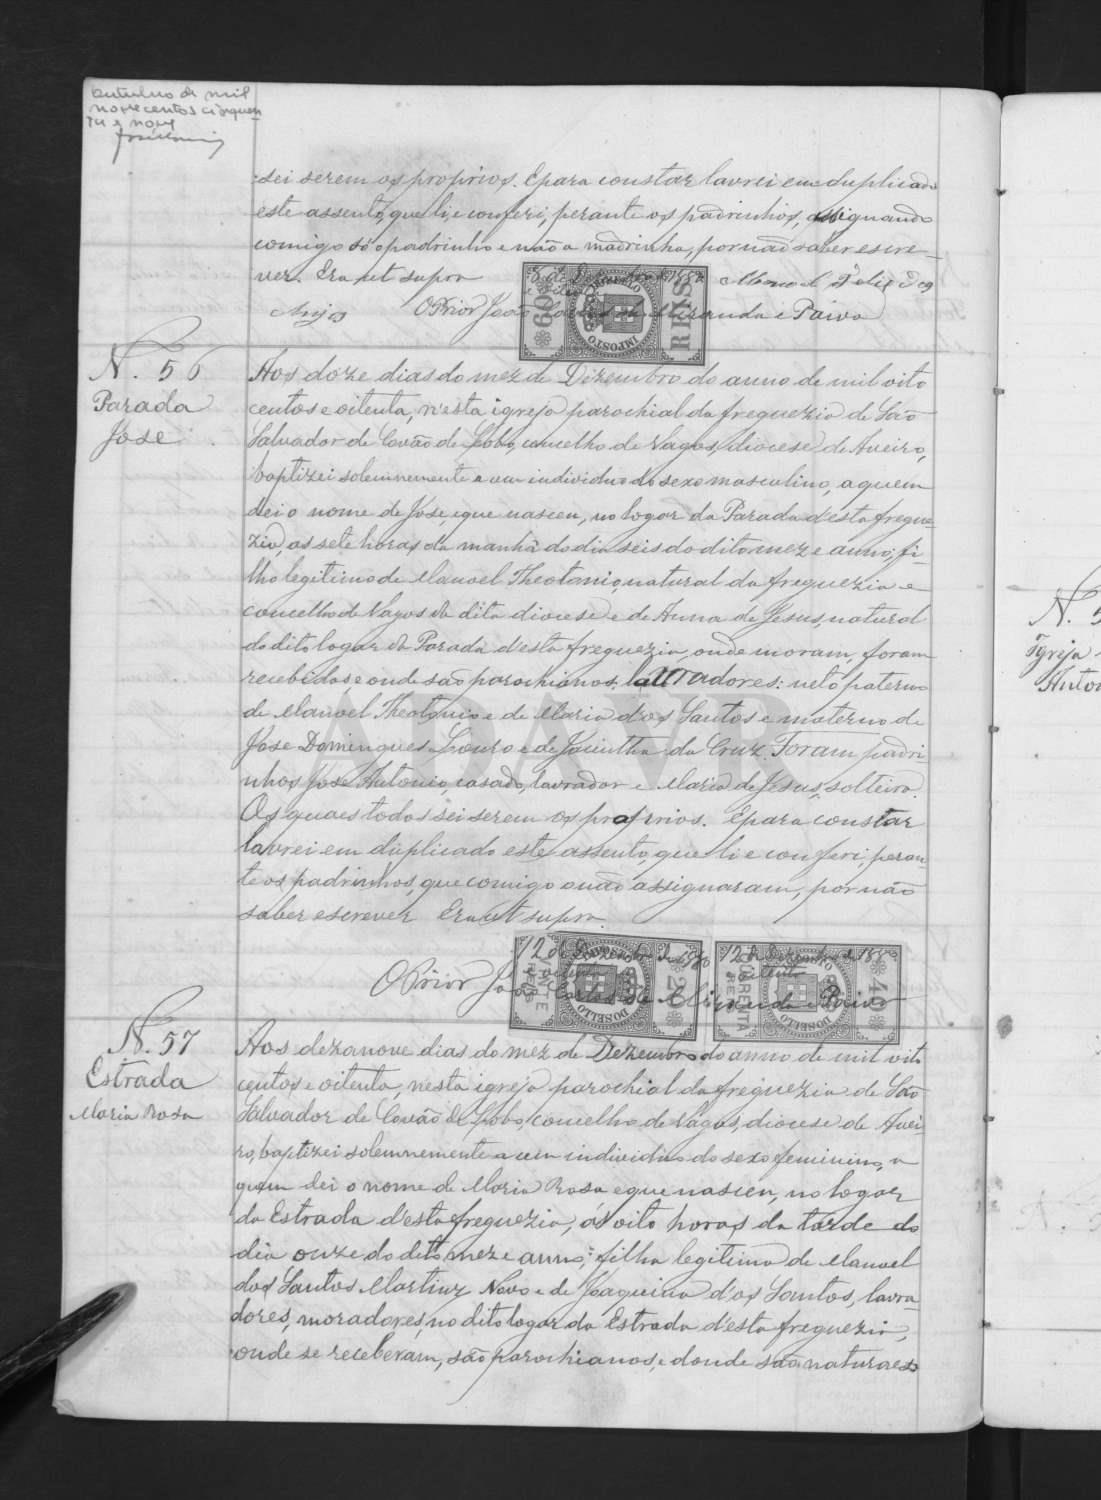 outubro de mil
novecentos cinquen
ta e nove
sei serem os proprios. E para constar lavrei em duplicado
este assento, que li, e conferi, perante os padrinhos, assignando
comigo só o padrinho e não a madrinha, por não saber escre-
ver. Era ut supra
Manoel Felix dos
Anjos
O Prior João Carlos de Miranda e Paiva
60 REIS
IMPOSTO DO SELLO
N. 56
Parada
José
Aos doze dias do mez de Dezembro do anno de mil oito
centos e oitenta, n'esta igreja parochial da freguezia de São
Salvador de Covão de Lobo, concelho de Vagos, diocese de Aveiro,
baptizei solemnemente a um individuo do sexo masculino, a quem
dei o nome de José, e que nasceu, no logar da Parada d'esta fregue-
zia, as sete horas da manhã do dia seis do dito mez e anno; fi-
lho legitimo de Manoel Theotonio, natural da freguezia e
concelho de Vagos da dita diocese e de Anna de Jesus, natural
do dito logar da Parada d'esta freguezia, onde moram, foram
recebidos, e onde são parochianos, lavradores: neto paterno
de Manoel Theotonio e de Maria d'os Santos e materno de
José Domingues Louro e de Jacintha da Cruz. Foram padri-
nhos José Antonio, casado, lavrador e Maria de Jesus, solteira.
Os quaes todos sei serem os proprios. E para constar
lavrei em duplicado este assento, que li e conferi, peran-
te os padrinhos, que comigo não assignaram, por não
saber escrever Era ut supra.
12 de Dezembro de 1880
12 de Dezembro de 1880
oitenta
O Prior João Carlos de Miranda e Paiva
VINTE REIS
IMPOSTO DO SELLO
20
QUARENTA REIS
DO SELLO
40
N. 57
Estrada
Maria Rosa
Aos dezanove dias do mez de Dezembro do anno de mil oito
centos e oitenta, nesta igreja parochial da freguezia de São
Salvador de Covão de Lobo, concelho de Vagos, diocese de Avei-
ro, baptizei solemnemente a um individuo do sexo feminino, a
quem dei o nome de Maria Rosa e que nasceu, no logar
da Estrada d'esta freguezia, ás oito horas da tarde do
dia onze do dito mez e anno; filha legitima de Manoel
dos Santos Martins Novo e de Joaquina d'os Santos, lavra-
dores, moradores, no dito logar da Estrada d'esta freguezia,
onde se receberam, são parochianos, e donde são naturaes
ADAVR
N. 5
Igreja
Anton